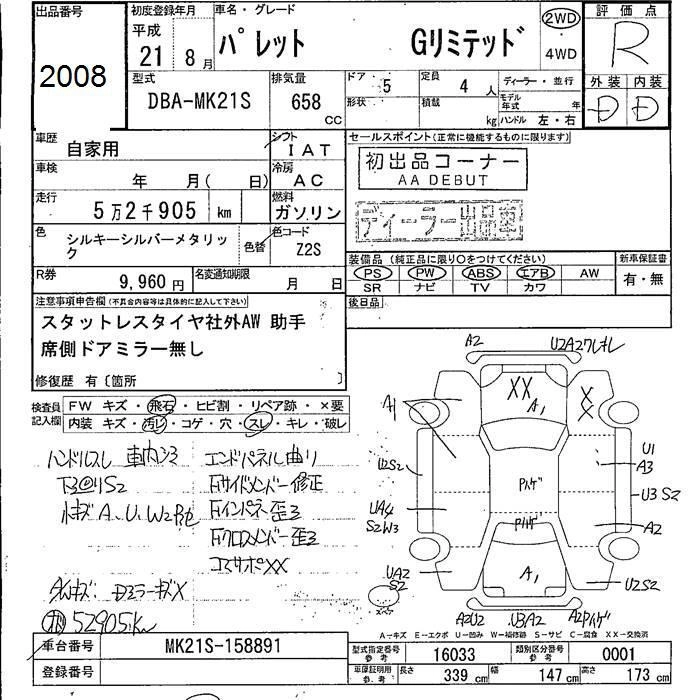 出品番号
2008
初度登録年月
平成
21 8月
車名・グレード
パレット Gリミテッド
2WD
・
4WD
評価点
R
型式
DBA-MK21S
排気量
658
cc
ドア・形状 5
定員 4人
積載 kg
ディーラー・並行
モデル年式 年
ハンドル 左・右
外装 内装
D D
車歴
自家用
シフト
IAT
セールスポイント(正常に機能するものに限ります)
初出品コーナー
AA DEBUT
ディーラー出品車
車検
年 月( 日)
冷房
AC
走行
5万2千905 km
燃料
ガソリン
色
シルキーシルバーメタリック
色替
色コード
Z2S
装備品(純正品に限り○をつけてください)
PS PW ABS エアB AW
SR ナビ TV カワ
新車保証書
有・無
R券
9,960円
名変通知期限
月 日
後日品
注意事項申告欄(不具合内容等は具体的に記入して下さい)
スタットレスタイヤ社外AW 助手
席側ドアミラー無し
修復歴 有〔箇所 〕
検査員
記入欄
FW キズ・飛石・ヒビ割・リペア跡・×要
内装 キズ・汚レ・コゲ・穴・スレ・キレ・破レ
ハンドルスレ 車内シミ
エンドパネル曲り
Fサイドメンバー修正
Fインパネ歪ミ
Fクロスメンバー歪ミ
コアサポXX
小キズA、U、W2
52905km
A2
U2A2ワレ
XX
A1
XX
A1
U2S2
UA4
S2W3
UA2
S2
スペア
U1
A3
U3S2
A2
U2S2
A1
A2U2
U3A2
A2
A-キズ E-エクボ U-凹み W-補修跡 S-サビ C-腐食 XX-交換済
車台番号
MK21S-158891
登録番号
型式指定番号
参考
16033
類別区分番号
参考
0001
車庫証明用
参考
長さ 339 cm
幅 147 cm
高さ 173 cm